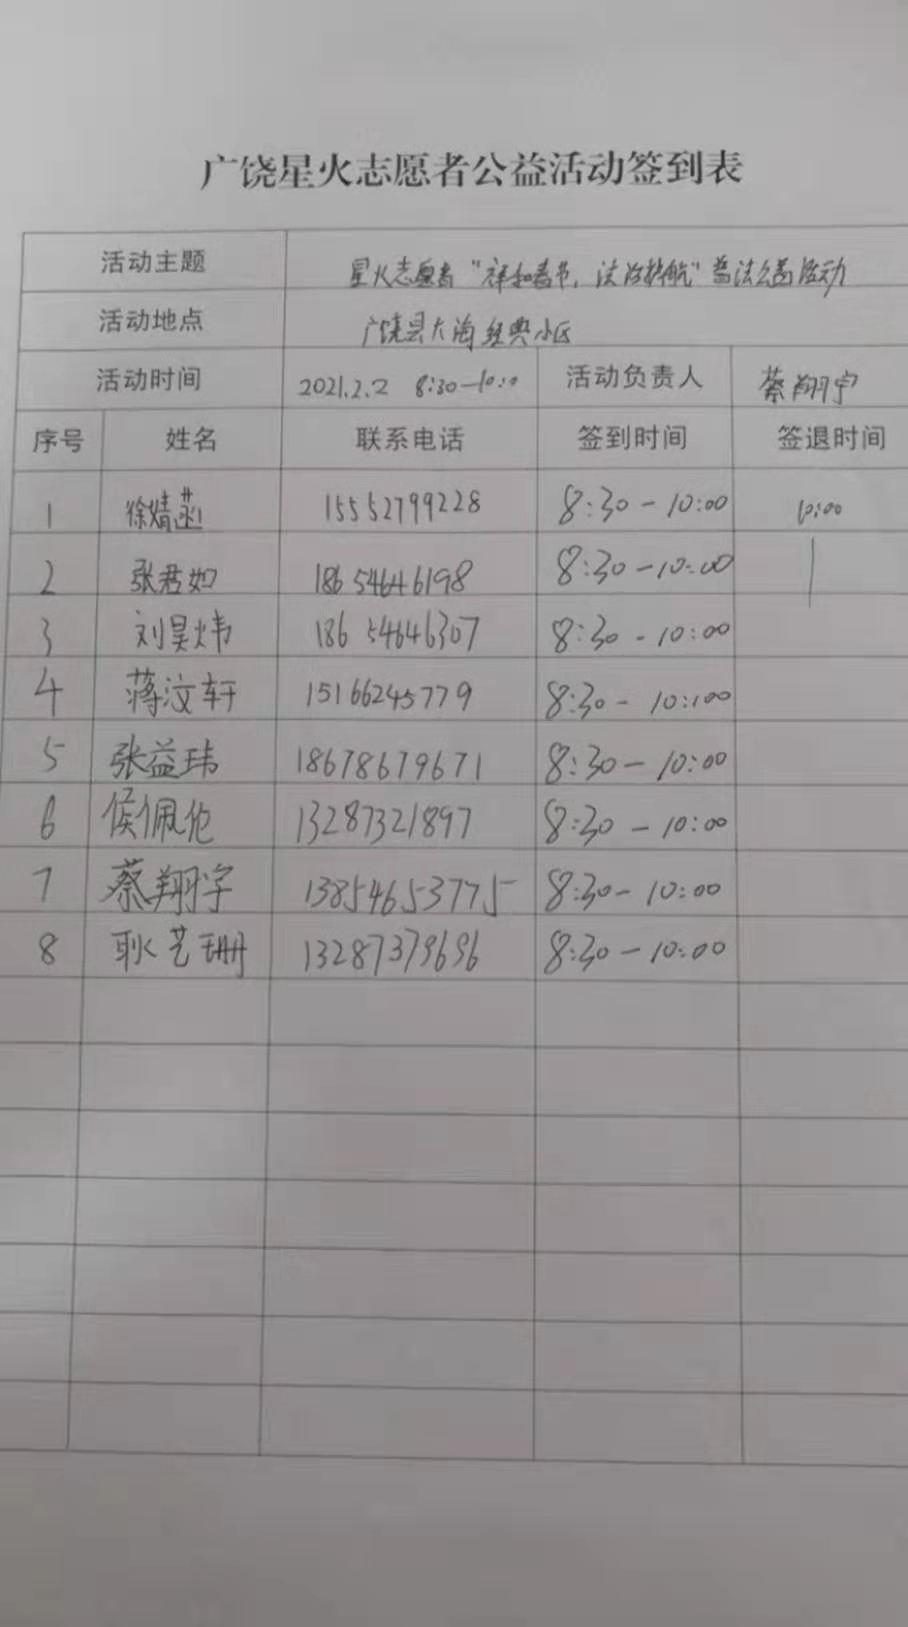 广饶星火志愿者公益活动签到表
活动主题 星火志愿者“祥和春节，法治护航”普法公益活动
活动地点 广饶县大海经典小区
活动时间 2021.2.2 8:30-10:00 活动负责人 蔡翔宇
序号 姓名 联系电话 签到时间 签退时间
1 徐婧菡 15552799228 8:30-10:00 10:00
2 张君如 18654646198 8:30-10:00
3 刘昊炜 18654646307 8:30-10:00
4 蒋汶轩 15166245779 8:30-10:00
5 张益玮 18678679671 8:30-10:00
6 侯佩伦 13287321897 8:30-10:00
7 蔡翔宇 13854653775 8:30-10:00
8 耿艺珊 13287379696 8:30-10:00